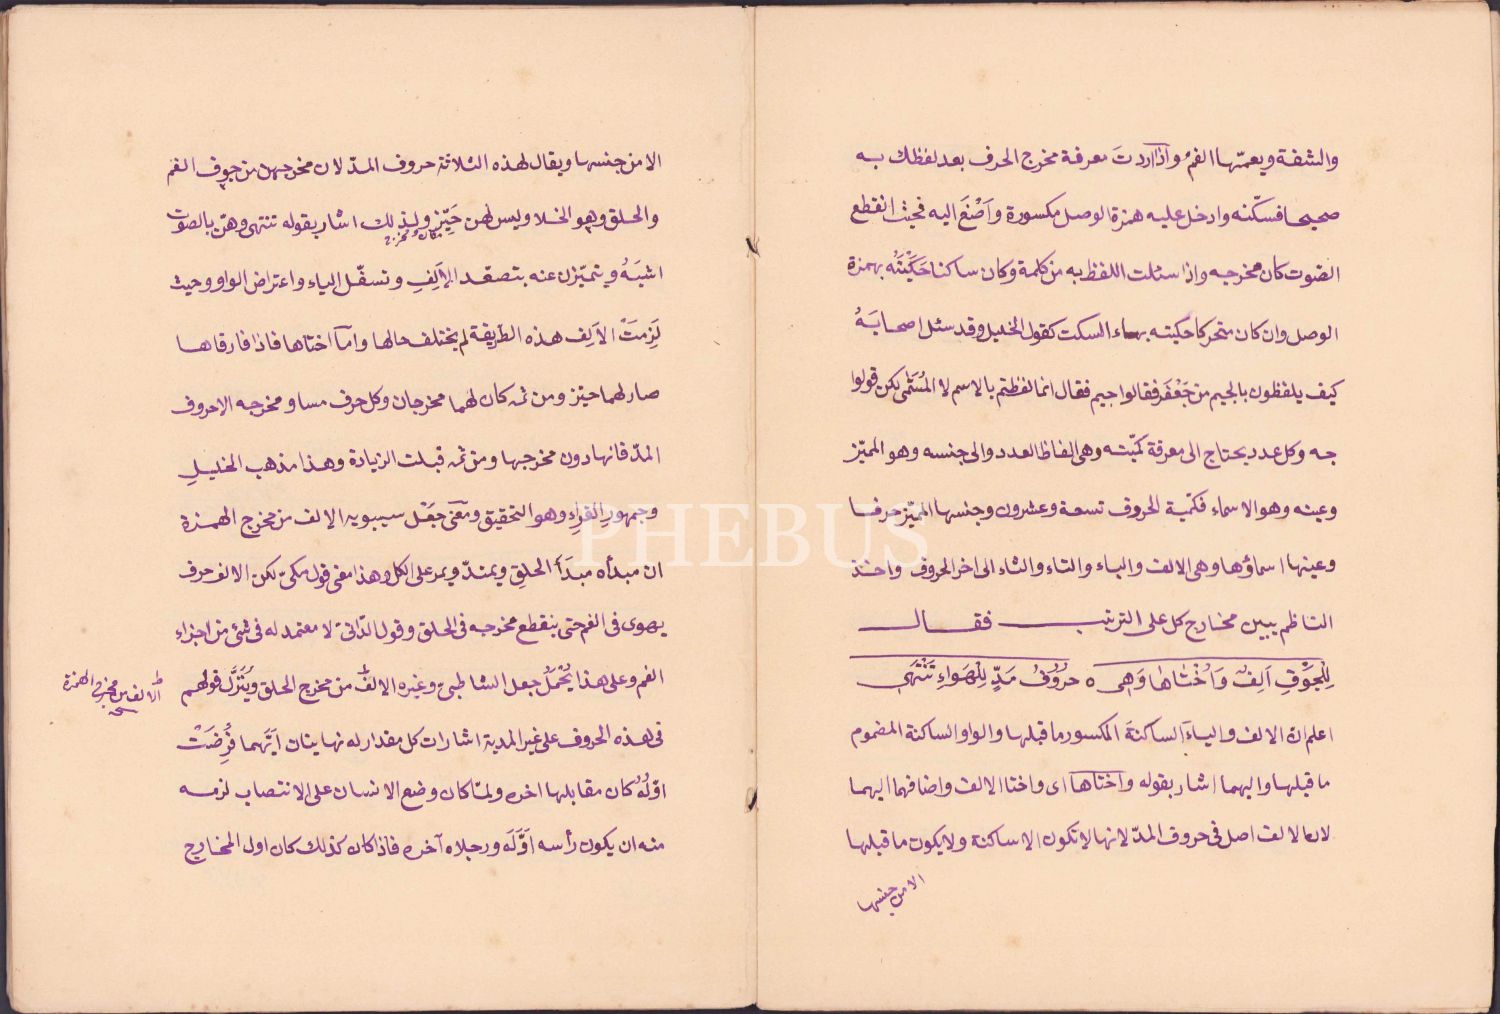 والشفة ويعمّها الفمُ واذا اردت معرفة مخرج الحرف بعد لفظك به
صحيحا فسكّنه وادخل عليه همزة الوصل مكسورة وَاَصْغَ اليه فحيث انقطع
الصّوت كان مخرجه واذا سئلت اللفظ به من كلمة وكان ساكنا حَكَيْتَهُ بهمزة
الوصل وان كان متحركا حكيته بهاء السكت كقول الخليل وقد سئل اصحابَهُ
كيف يلفظون بالجيم من جَعْفَر فقالوا جيم فقال انما لفظتم بالاسم لا المُسَمّٰى لكن قولوا
جه وكل عدد يحتاج الى معرفة كمّيته وهى الفاظ العدد والى جنسه وهو المميّز
وعينه وهو الاسماء فكمّية الحروف تسعة وعشرون وجنسها المميّز حرفا
وعينها اسماؤها وهى الالف والباء والتاء والثاء الى اخر الحروف واخذ
الناظم يبين مخارج كل على الترتيب فقال
لِلْجَوْفِ اَلِفٌ وَاُخْتَاهَا وَهِى ه حُرُوُفُ مَدٍّ لِلْهَوَاءِ تَنْتَهِى
اعلم ان الالف والياءَ الساكنةَ المكسور ما قبلها والواو الساكنة المضموم
ما قبلها واليهما اشار بقوله واختاها اى واختا الالف واضافهما اليهما
لان الالف اصل فى حروف المدّ لانها لا تكون الا ساكنة ولا يكون ما قبلها
الا من جنسها
الا من جنسها ويقال لهذه الثلاثة حروف المدّ لان مخرجهن من جوف الفم
والحلق وهو الخلا وليس لهن حَيّز ولذلك اشار بقوله تنتهى وهنّ بالصّوت
اشبَهُ ويتميّزن عنه بتصعّد الاَلِفِ وتسفّل الياء واعتراض الواو وحيث
لَزِمَتْ الاَلِف هذه الطّريقة لم يختلف حالها وامّا اختاها فاذا فارقاها
صار لهما حيّز ومن ثم كان لهما مخرجان وكل حرف مساو مخرجه الا حروف
المدّ فانها دون مخرجها ومن ثمه قبلت الزيادة وهذا مذهب الخليلِ
وجمهور القراءِ وهو التحقيق ومعنى جَعْل سيبويه الالف من مخرج الهمزة
ان مبدأه مبدَأ الحلقِ ويمتدّ ويمر على الكل وهذا معنى قول مكىّ لكن الالف حرف
يهوى فى الفم حتى ينقطع مخرجه فى الحلق وقول الدّانىّ لا معتمد له فى شئ من اجزاء
الفم وعلى هذا يُحْمَلُ جعل الشاطبىّ وغيره الالف من مخرج الحلق ويُتَنَزَّل قولهم
الالف من مخرج الهمزة
فى هذه الحروف على غير المدية اشارات كل مقدار له نهايتان اَيَّهما فُرِضَتْ
اوّلُهُ كان مقابلها اخره ولمّا كان وضع الانسان على الانتصاب لزمه
منه ان يكون رأسه اَوَّلَه ورجلاه آخره فاذا كان كذلك كان اول المخارج
PHEBUS